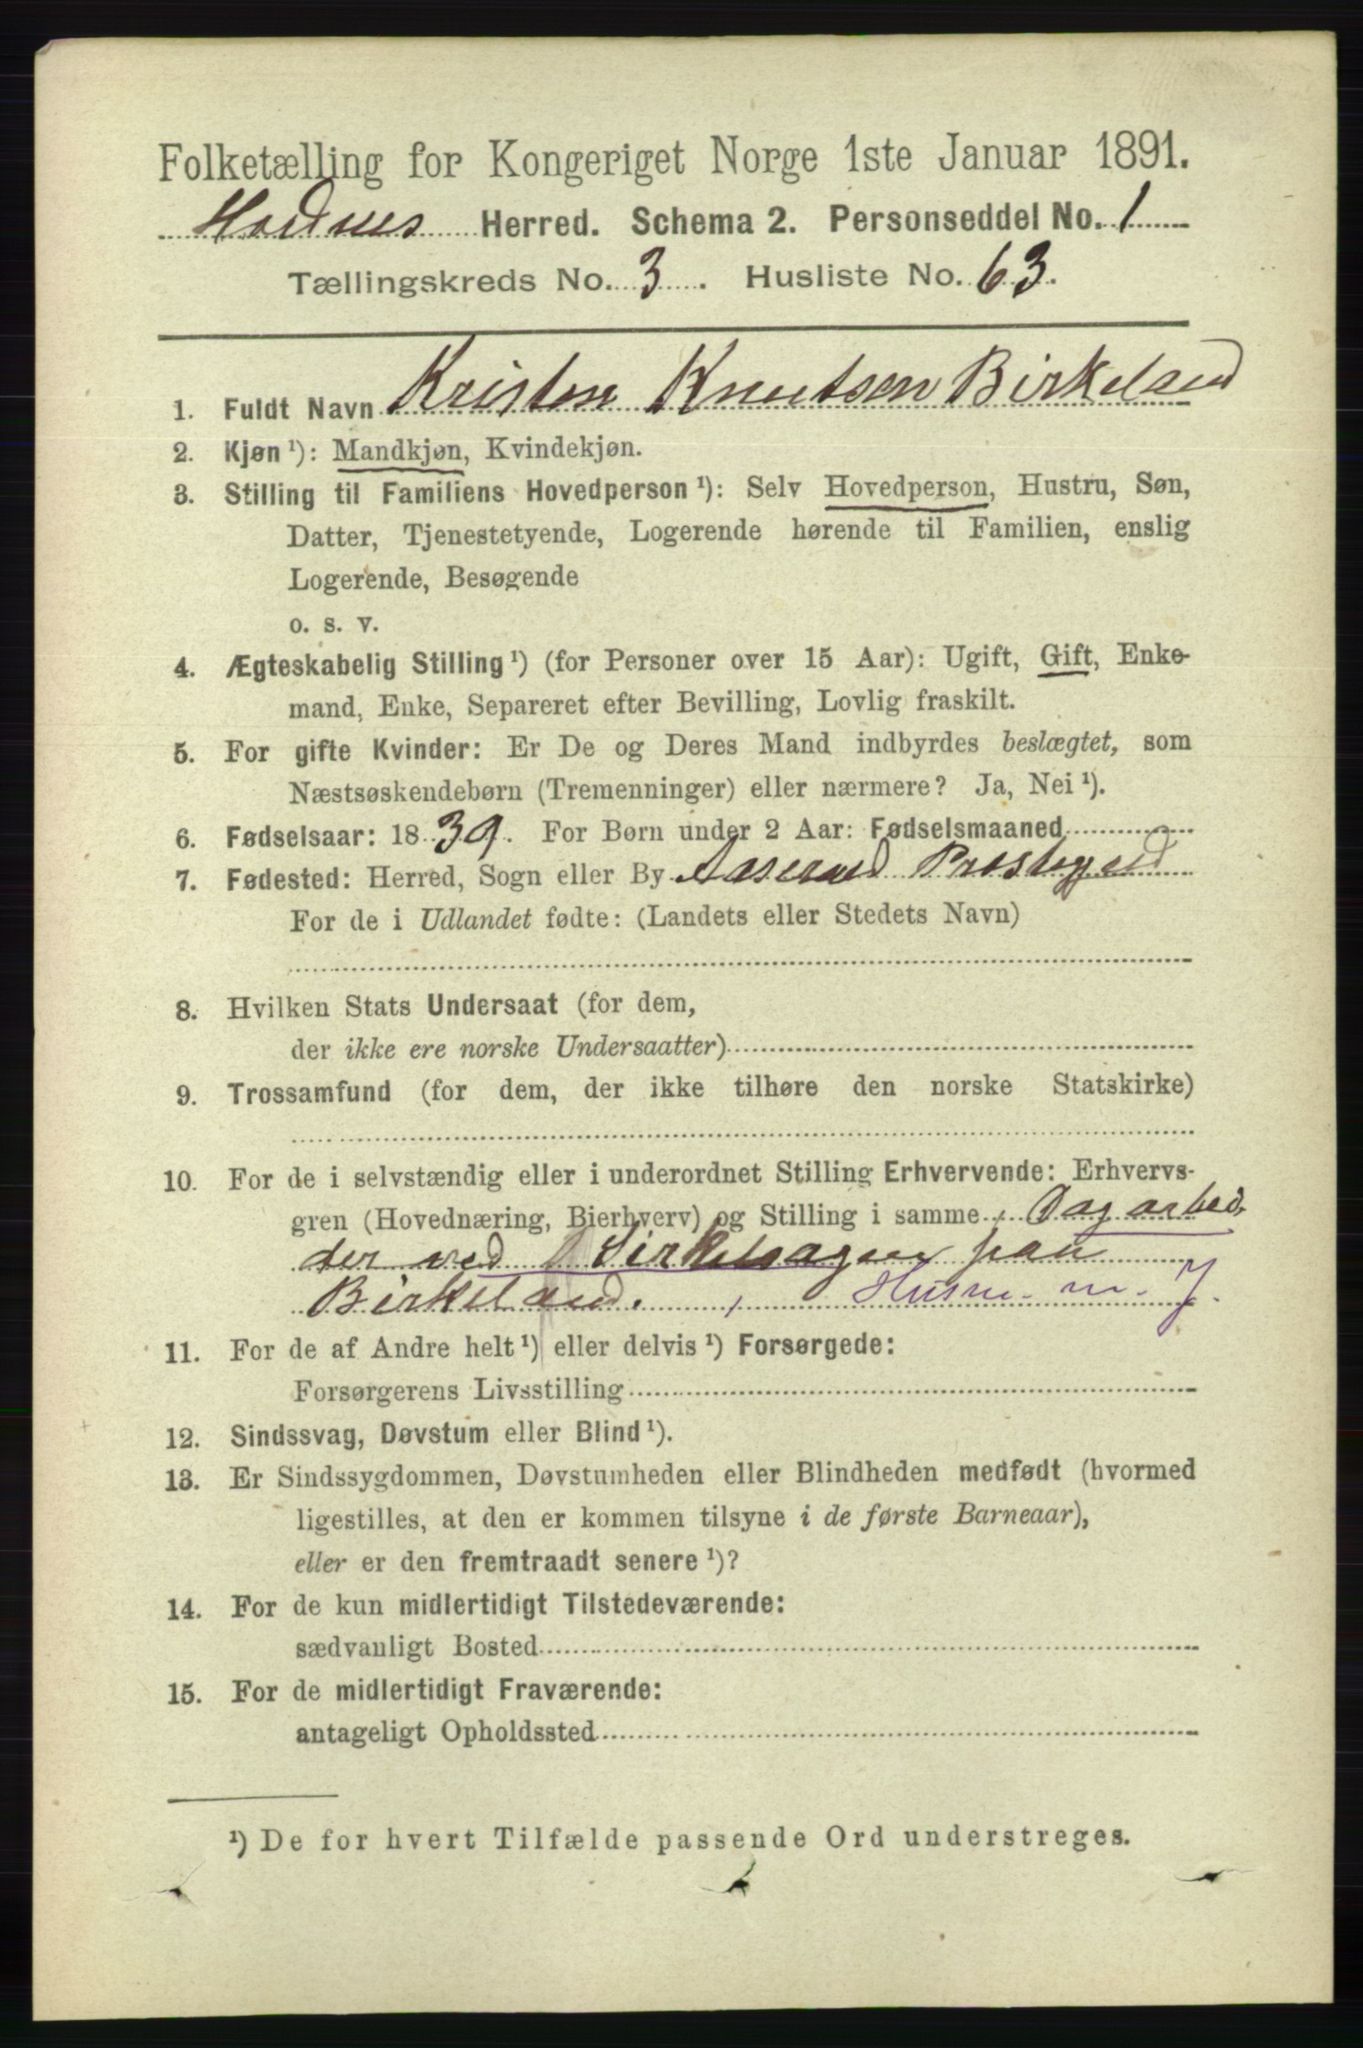 Folketælling for Kongeriget Norge 1ste Januar 1891.
Herred. Schema 2. Personseddel No. 1
Tællingskreds No. 3. Husliste No. 63.
1. Fuldt Navn Kristen Knutsen Birkeland
2. Kjøn ¹): Mandkjøn, Kvindekjøn.
3. Stilling til Familiens Hovedperson ¹): Selv Hovedperson, Hustru, Søn,
Datter, Tjenestetyende, Logerende hørende til Familien, enslig
Logerende, Besøgende
o. s. v.
4. Ægteskabelig Stilling ¹) (for Personer over 15 Aar): Ugift, Gift, Enke-
mand, Enke, Separeret efter Bevilling, Lovlig fraskilt.
5. For gifte Kvinder: Er De og Deres Mand indbyrdes beslægtet, som
Næstsøskendebørn (Tremenninger) eller nærmere? Ja, Nei ¹).
6. Fødselsaar: 1839. For Børn under 2 Aar: Fødselsmaaned
7. Fødested: Herred, Sogn eller By Aaserald
For de i Udlandet fødte: (Landets eller Stedets Navn)
8. Hvilken Stats Undersaat (for dem,
der ikke ere norske Undersaatter)
9. Trossamfund (for dem, der ikke tilhøre den norske Statskirke)
10. For de i selvstændig eller i underordnet Stilling Erhvervende: Erhvervs-
gren (Hovednæring, Bierhverv) og Stilling i samme Dagarbei
der ved Sirkelsagen paa
Birkeland. Husm. m. J.
11. For de af Andre helt ¹) eller delvis ¹) Forsørgede:
Forsørgerens Livsstilling
12. Sindssvag, Døvstum eller Blind ¹).
13. Er Sindssygdommen, Døvstumheden eller Blindheden medfødt (hvormed
ligestilles, at den er kommen tilsyne i de første Barneaar),
eller er den fremtraadt senere ¹)?
14. For de kun midlertidigt Tilstedeværende:
sædvanligt Bosted
15. For de midlertidigt Fraværende:
antageligt Opholdssted
¹) De for hvert Tilfælde passende Ord understreges.